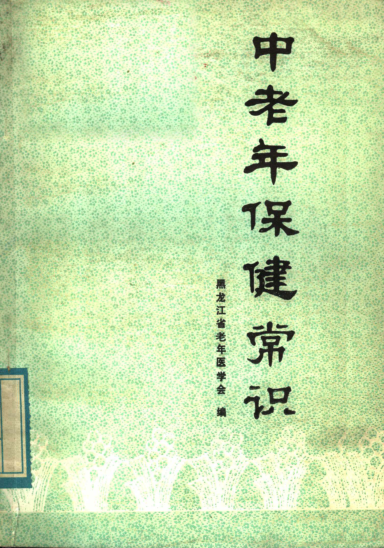 中老年保健常识
黑龙江省老年医学会 编